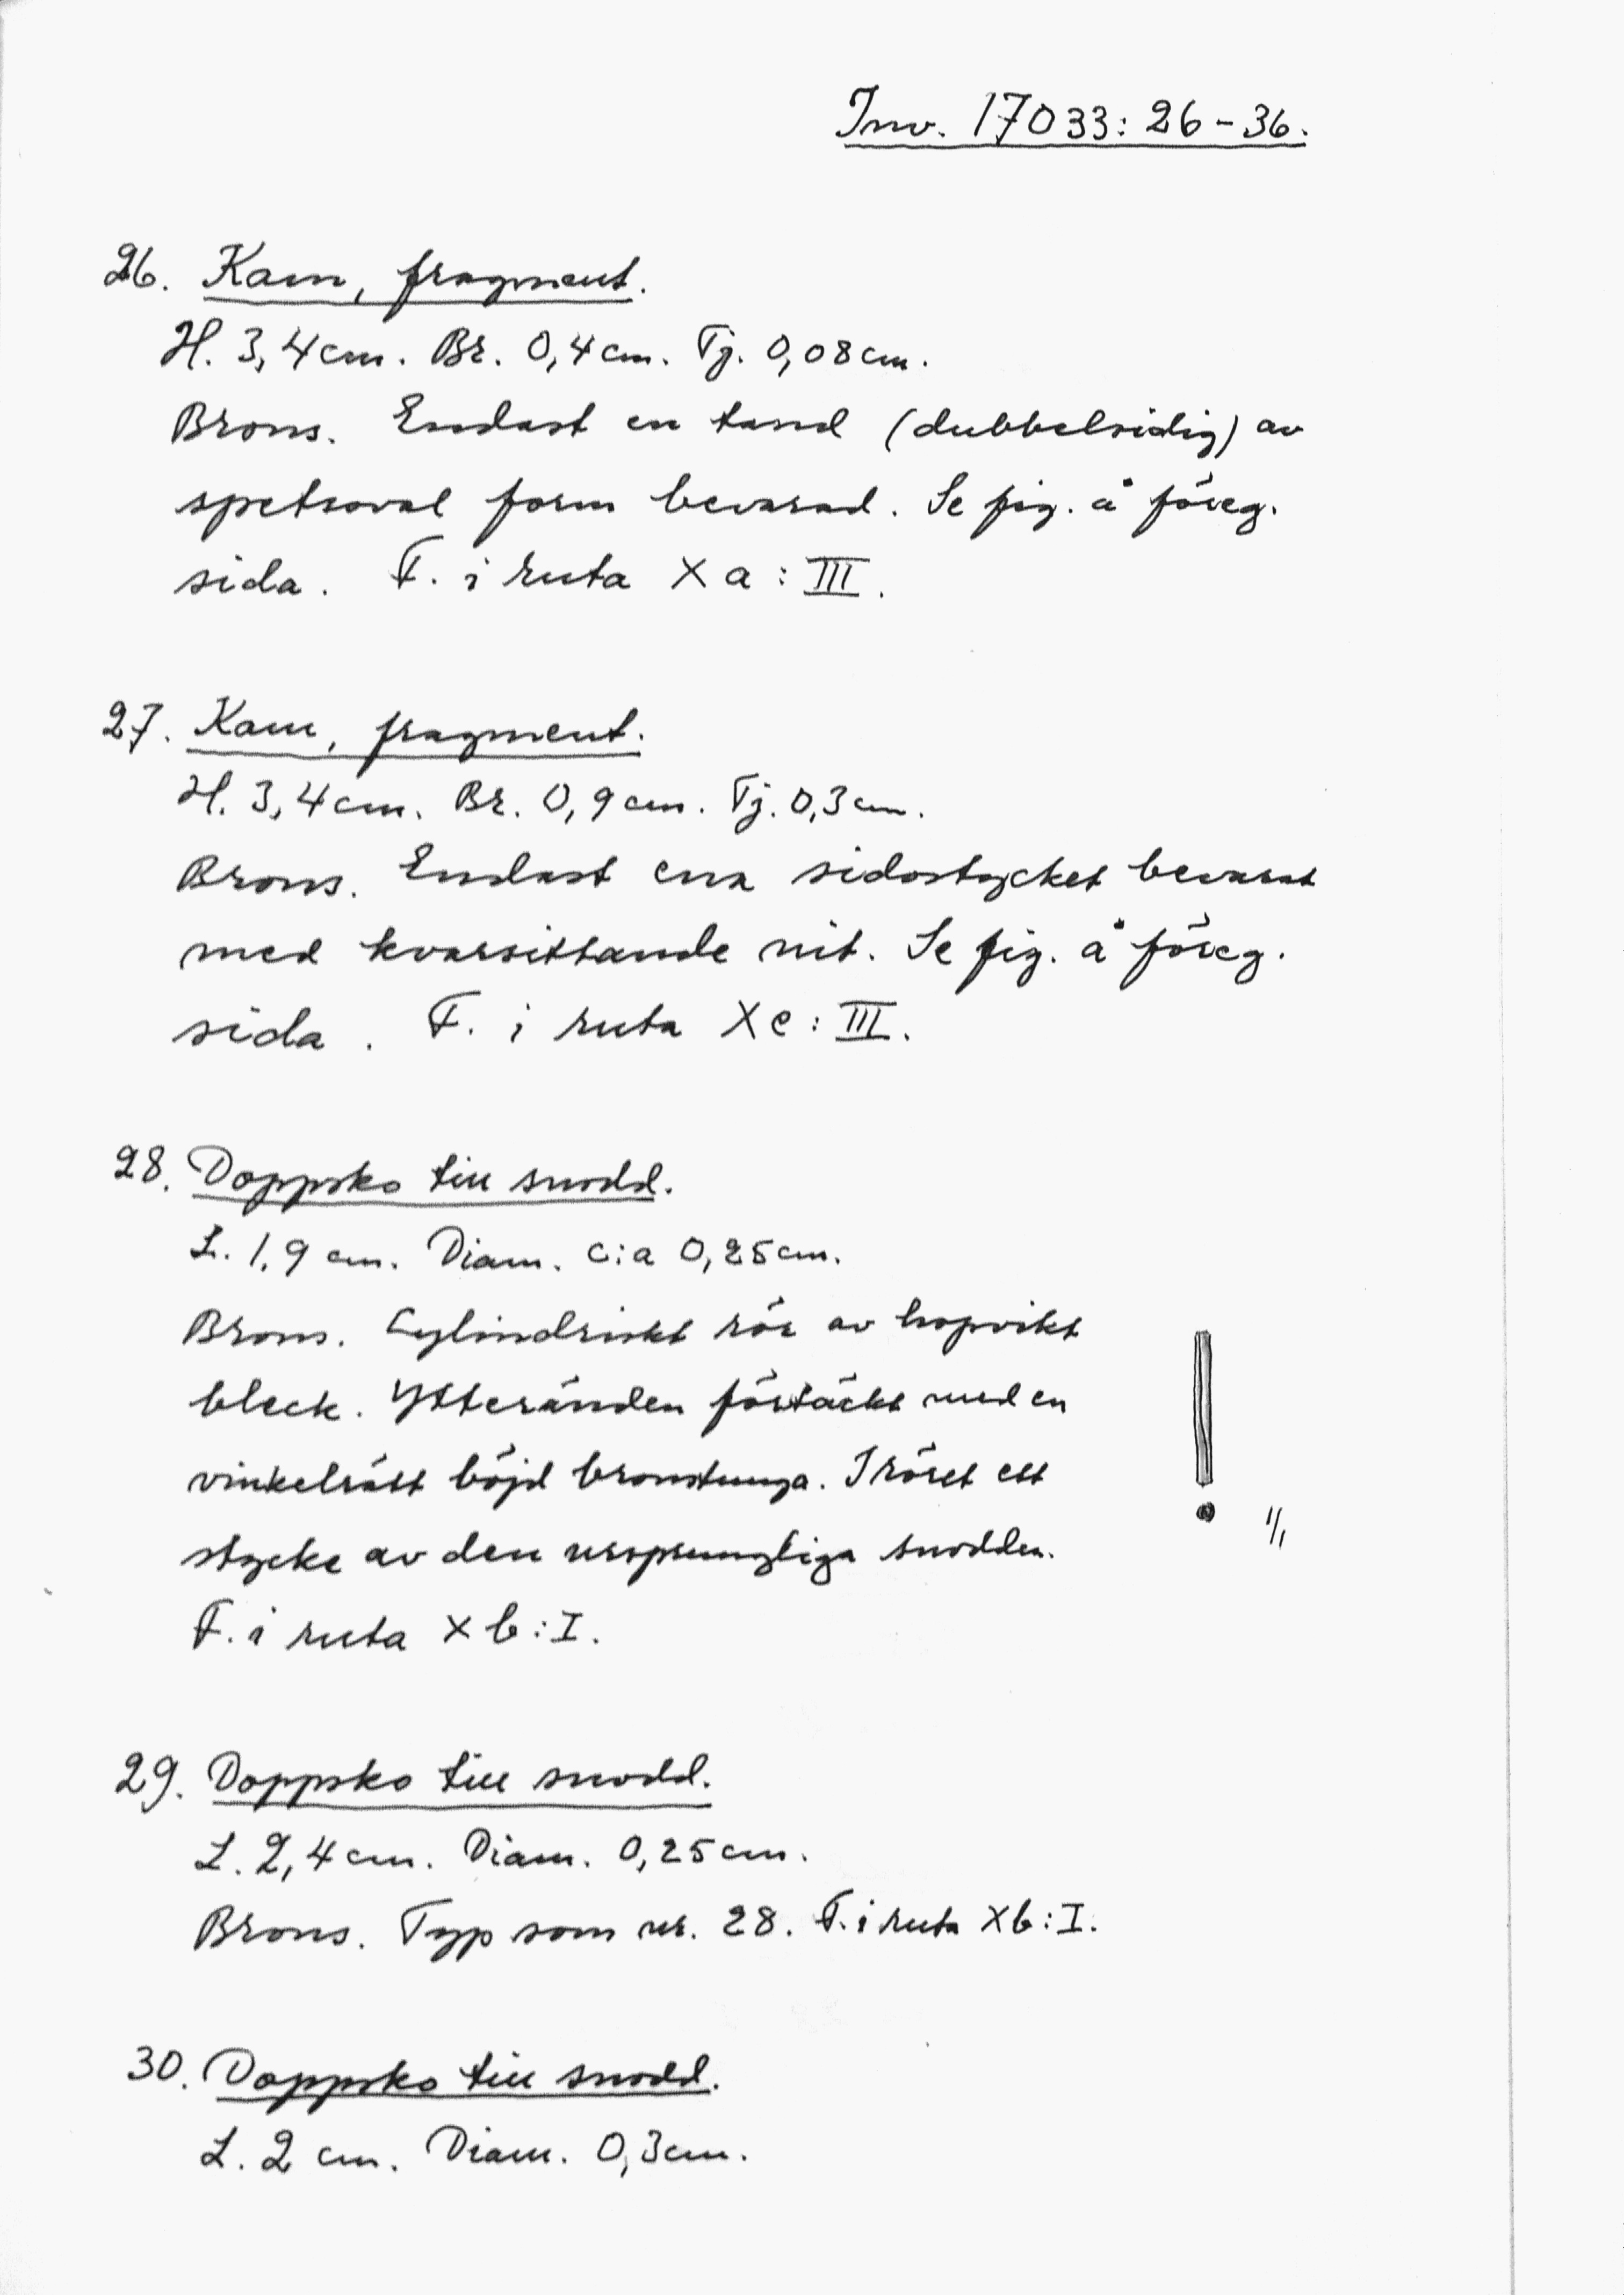 Inv. 17033: 26-36.
26. Kam, fragment.
H. 3,4 cm. Br. 0,4 cm. Tj. 0,08 cm.
Brons. Endast en tand (dubbelsidig) av
spetsoval form bevarad. Se fig. å föreg.
sida. F. i ruta Xa: III.
27. Kam, fragment.
H. 3,4 cm. Br. 0,9 cm. Tj. 0,3 cm.
Brons. Endast ena sidostycket bevarat
med kvarsittande nit. Se fig. å föreg.
sida. F. i ruta Xc: III.
28. Doppsko till snodd.
L. 1,9 cm. Diam. c:a 0,25 cm.
Brons. Cylindriskt rör av hopvikt
bleck. Ytteränden förtäckt med en
vinkelrätt böjd bronstunga. I röret ett
stycke av den ursprungliga snodden.
1/1
F. i ruta Xb: I.
29. Doppsko till snodd.
L. 2,4 cm. Diam. 0,25 cm.
Brons. Typ som nr. 28. F. i ruta Xb: I.
30. Doppsko till snodd.
L. 2 cm. Diam. 0,3 cm.